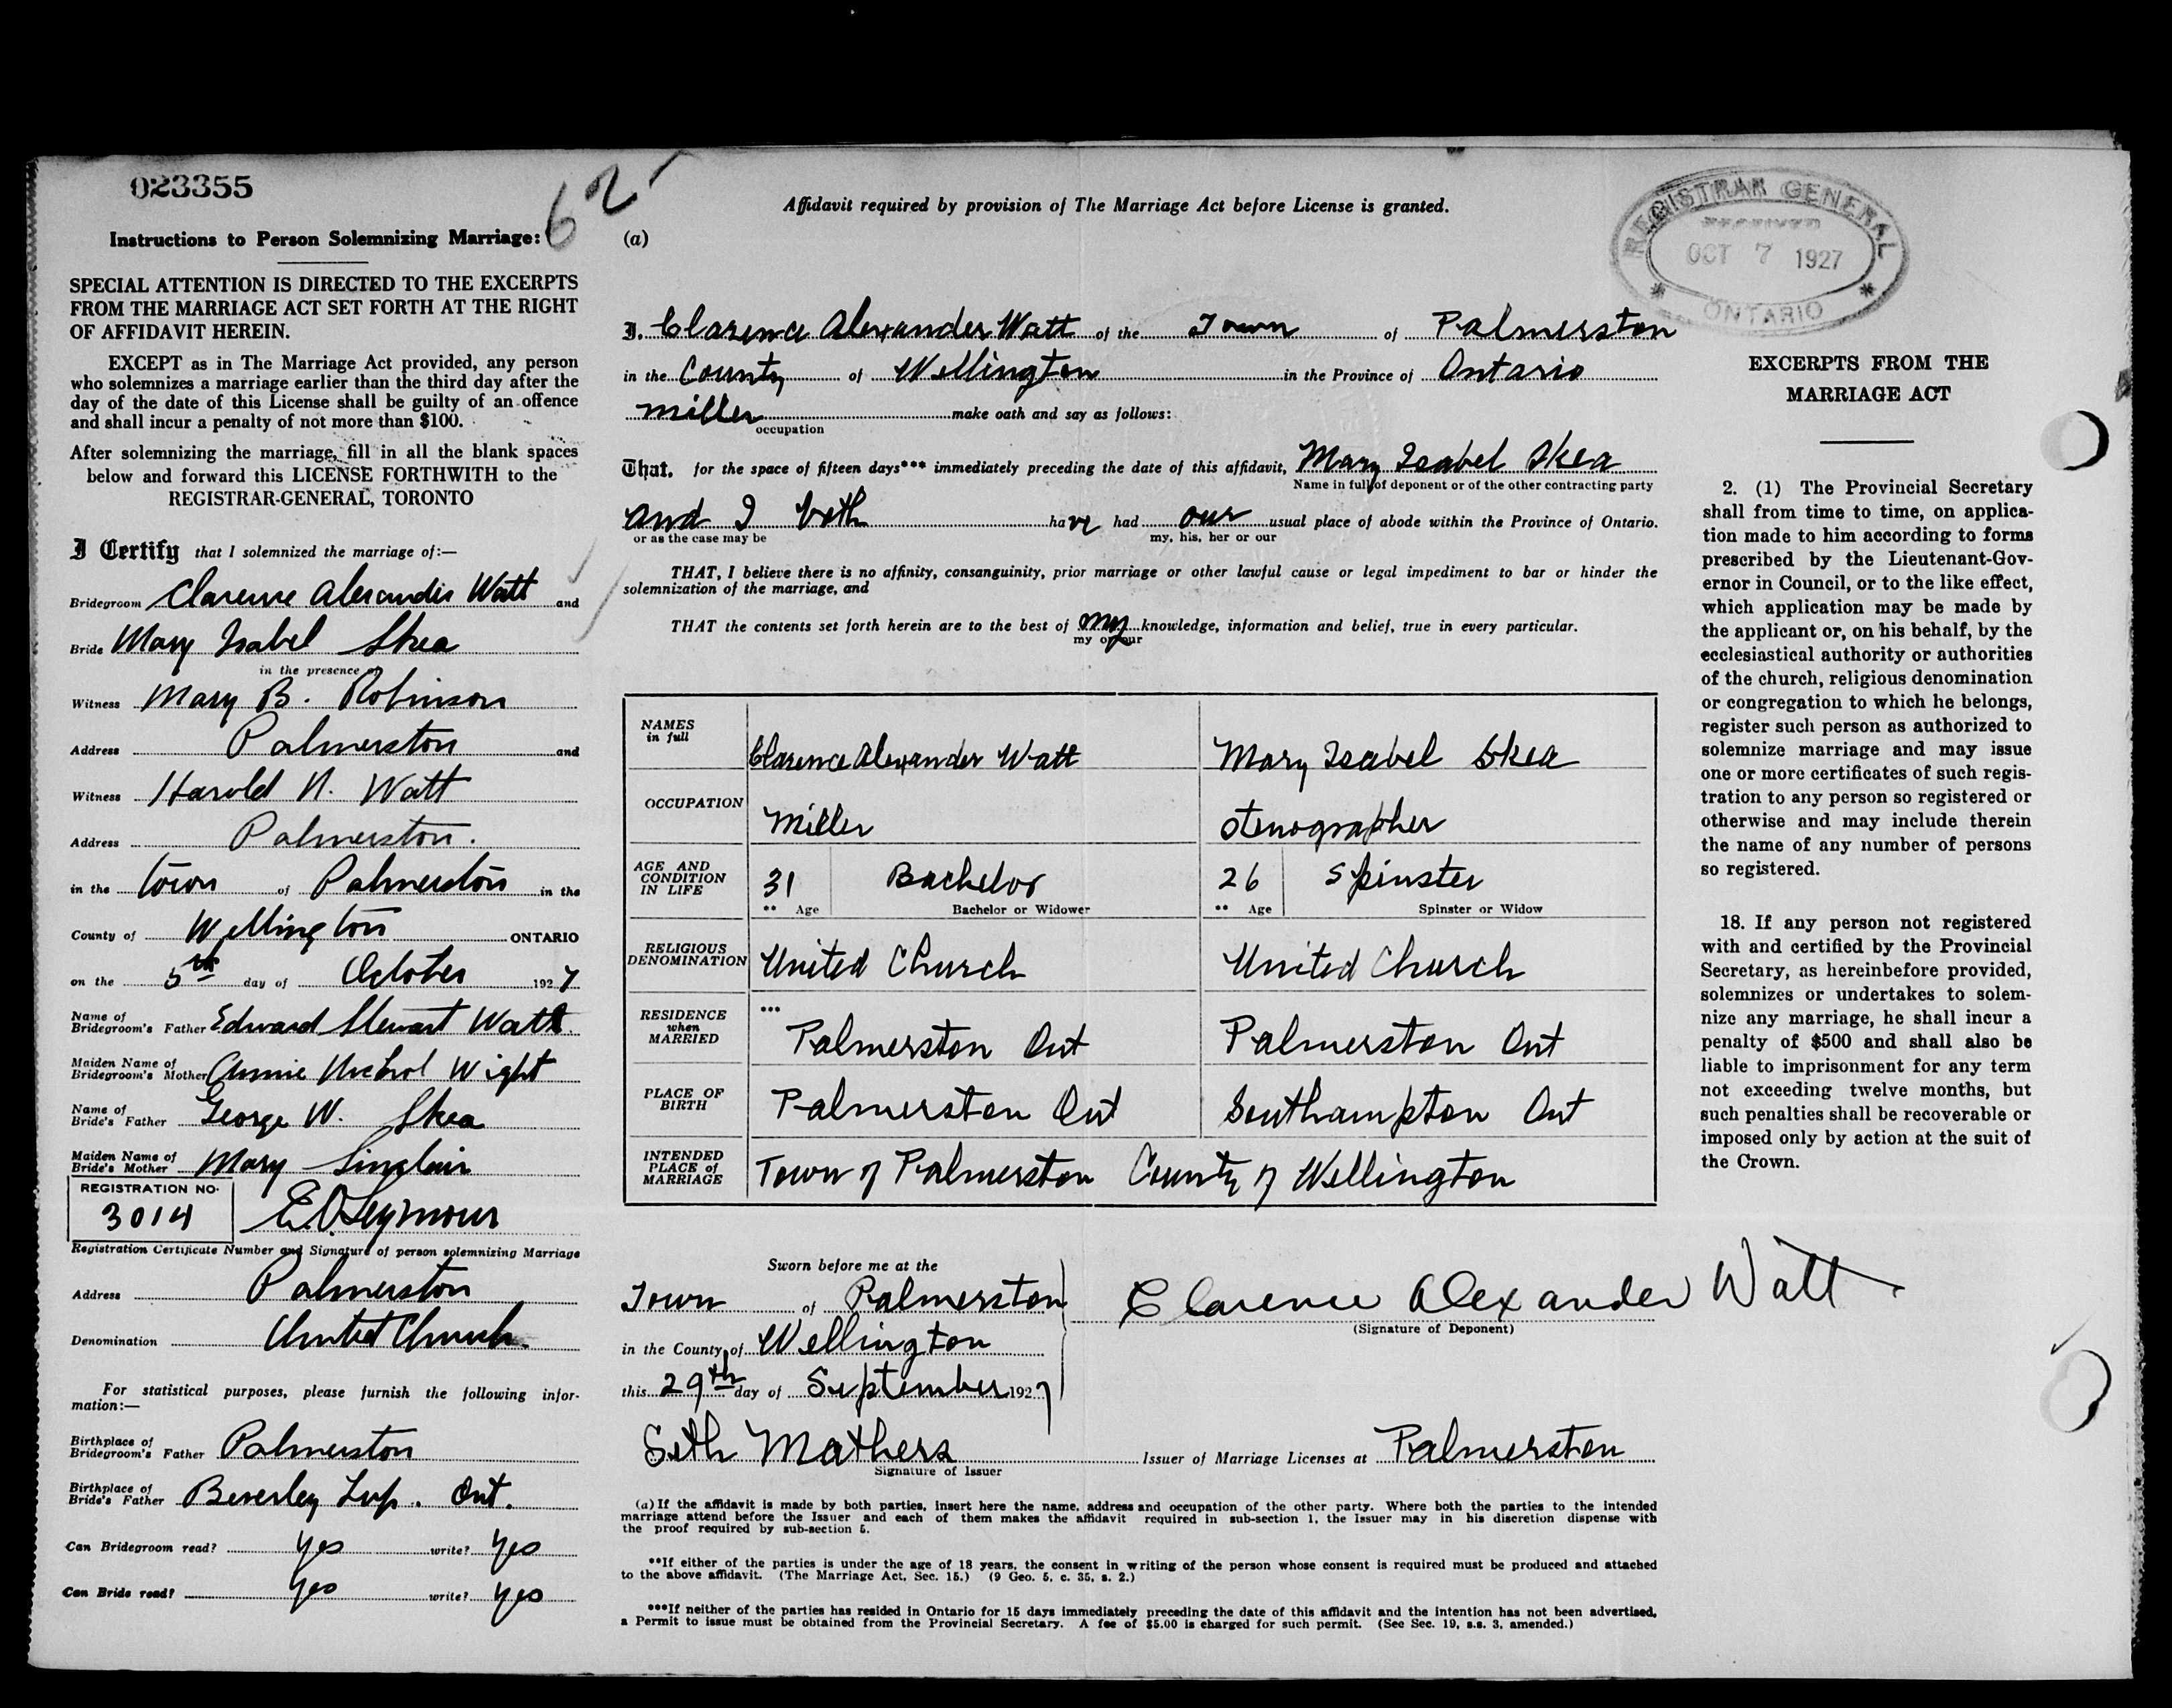 023355
62-
Instructions to Person Solemnizing Marriage:
SPECIAL ATTENTION IS DIRECTED TO THE EXCERPTS
FROM THE MARRIAGE ACT SET FORTH AT THE RIGHT
OF AFFIDAVIT HEREIN.
EXCEPT as in The Marriage Act provided, any person
who solemnizes a marriage earlier than the third day after the
day of the date of this License shall be guilty of an offence
and shall incur a penalty of not more than $100.
After solemnizing the marriage, fill in all the blank spaces
below and forward this LICENSE FORTHWITH to the
REGISTRAR-GENERAL, TORONTO
I Certify that I solemnized the marriage of:—
Bridegroom Clarence Alexander Watt and
Bride Mary Isabel Skea
in the presence of
Witness Mary B. Robinson
Address Palmerston and
Witness Harold N. Watt
Address Palmerston.
in the town of Palmerston in the
County of Wellington ONTARIO
on the 5th day of October 1927
Name of
Bridegroom's Father Edward Stewart Watt.
Maiden Name of
Bridegroom's Mother Annie Nichol Wight
Name of
Bride's Father George W. Skea
Maiden Name of
Bride's Mother Mary Sinclair
REGISTRATION NO.
3014
E. O. Seymour
Registration Certificate Number and Signature of person solemnizing Marriage
Address Palmerston
Denomination United Church.
For statistical purposes, please furnish the following infor-
mation:—
Birthplace of
Bridegroom's Father Palmerston
Birthplace of
Bride's Father Beverley Twp. Ont.
Can Bridegroom read? Yes write? Yes
Can Bride read? Yes write? Yes
Affidavit required by provision of The Marriage Act before License is granted.
(a)
I, Clarence Alexander Watt of the Town of Palmerston
in the County of Wellington in the Province of Ontario
Miller make oath and say as follows:
occupation
That, for the space of fifteen days*** immediately preceding the date of this affidavit, Mary Isabel Skea
Name in full of deponent or of the other contracting party
and I both have had our usual place of abode within the Province of Ontario.
or as the case may be my, his, her or our
THAT, I believe there is no affinity, consanguinity, prior marriage or other lawful cause or legal impediment to bar or hinder the
solemnization of the marriage, and
THAT the contents set forth herein are to the best of my knowledge, information and belief, true in every particular.
my or our
NAMES
in full
Clarence Alexander Watt Mary Isabel Skea
OCCUPATION
Miller Stenographer
AGE AND
CONDITION
IN LIFE
31 Bachelor 26 Spinster
** Age Bachelor or Widower ** Age Spinster or Widow
RELIGIOUS
DENOMINATION
United Church United Church
RESIDENCE
when
MARRIED
***
Palmerston Ont Palmerston Ont
PLACE OF
BIRTH
Palmerston Ont Southampton Ont
INTENDED
PLACE of
MARRIAGE
Town of Palmerston County of Wellington
Sworn before me at the
Town of Palmerston
in the County of Wellington
this 29th day of September 1927
Clarence Alexander Watt
(Signature of Deponent)
Seth Mathers Issuer of Marriage Licenses at Palmerston
Signature of Issuer
(a) If the affidavit is made by both parties, insert here the name, address and occupation of the other party. Where both the parties to the intended
marriage attend before the Issuer and each of them makes the affidavit required in sub-section 1, the Issuer may in his discretion dispense with
the proof required by sub-section 5.
**If either of the parties is under the age of 18 years, the consent in writing of the person whose consent is required must be produced and attached
to the above affidavit. (The Marriage Act, Sec. 15.) (9 Geo. 5, c. 35, s. 2.)
***If neither of the parties has resided in Ontario for 15 days immediately preceding the date of this affidavit and the intention has not been advertised,
a Permit to issue must be obtained from the Provincial Secretary. A fee of $5.00 is charged for such permit. (See Sec. 19, s.s. 3, amended.)
REGISTRAR GENERAL
RECEIVED
OCT 7 1927
* ONTARIO *
EXCERPTS FROM THE
MARRIAGE ACT
2. (1) The Provincial Secretary
shall from time to time, on applica-
tion made to him according to forms
prescribed by the Lieutenant-Gov-
ernor in Council, or to the like effect,
which application may be made by
the applicant or, on his behalf, by the
ecclesiastical authority or authorities
of the church, religious denomination
or congregation to which he belongs,
register such person as authorized to
solemnize marriage and may issue
one or more certificates of such regis-
tration to any person so registered or
otherwise and may include therein
the name of any number of persons
so registered.
18. If any person not registered
with and certified by the Provincial
Secretary, as hereinbefore provided,
solemnizes or undertakes to solem-
nize any marriage, he shall incur a
penalty of $500 and shall also be
liable to imprisonment for any term
not exceeding twelve months, but
such penalties shall be recoverable or
imposed only by action at the suit of
the Crown.